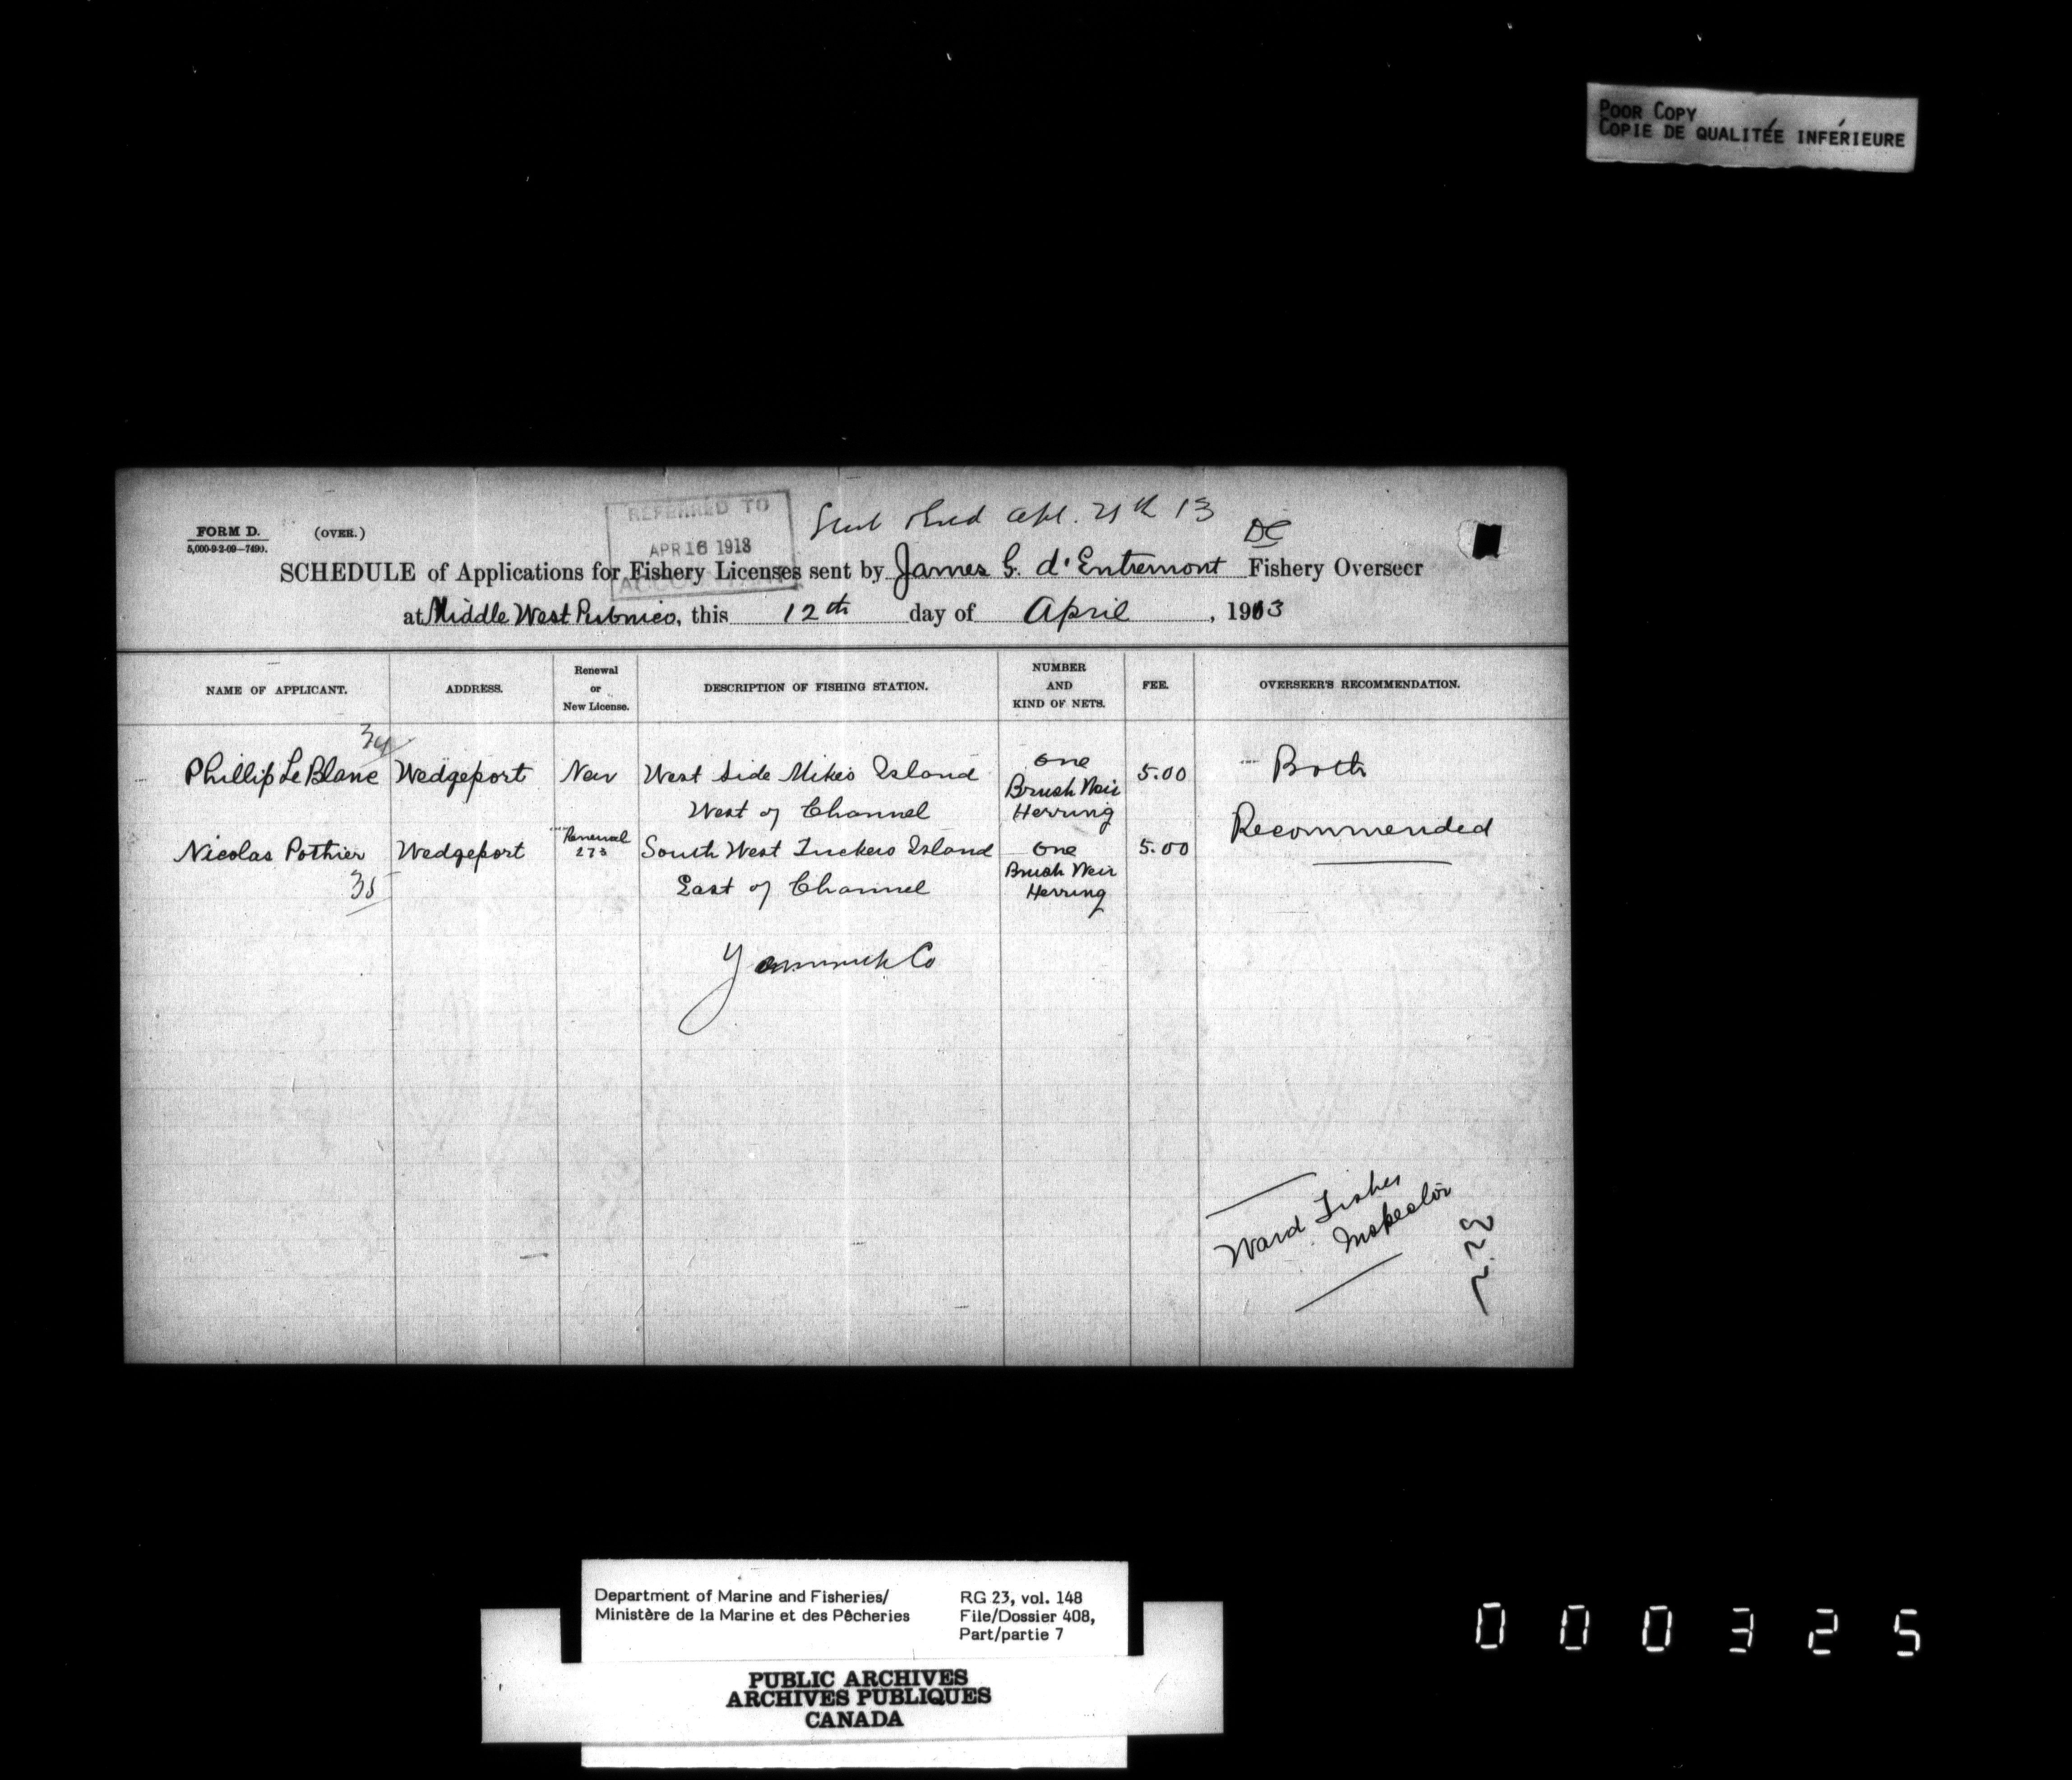 POOR COPY
COPIE DE QUALITÉE INFÉRIEURE
REFERRED TO
APR 16 1913
FORM D. (OVER.)
5,000-9-2-09—7490.
Apl. 21th 13
DC
SCHEDULE of Applications for Fishery Licenses sent by James G. d'Entremont Fishery Overseer
at Middle West Pubnico, this 12th day of April, 1913
NAME OF APPLICANT. ADDRESS. Renewal or New License. DESCRIPTION OF FISHING STATION. NUMBER AND KIND OF NETS. FEE. OVERSEER'S RECOMMENDATION.
34
Phillip LeBlanc Wedgeport New West Side Mikes Island One 5.00 Both
West of Channel Brush Weir Herring
Recommended
Nicolas Pothier Wedgeport Renewal 273 South West Tuckers Island One 5.00
35 East of Channel Brush Weir Herring
Yarmouth Co
Ward Fisher
Inspector
Department of Marine and Fisheries/
Ministère de la Marine et des Pêcheries
RG 23, vol. 148
File/Dossier 408,
Part/partie 7
PUBLIC ARCHIVES
ARCHIVES PUBLIQUES
CANADA
000325